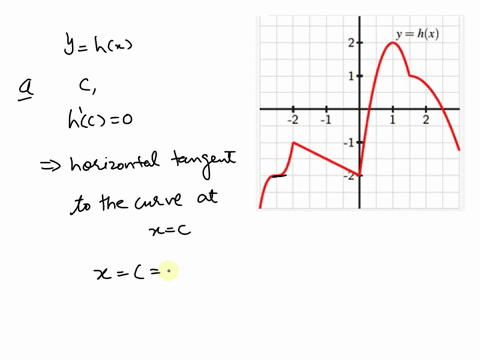 y = h(x)
a c,
h'(c) = 0
⇒ horizontal tangent
to the curve at
x = c
x = c =
y = h(x)
2
1
-2 -1 1 2
-1
-2